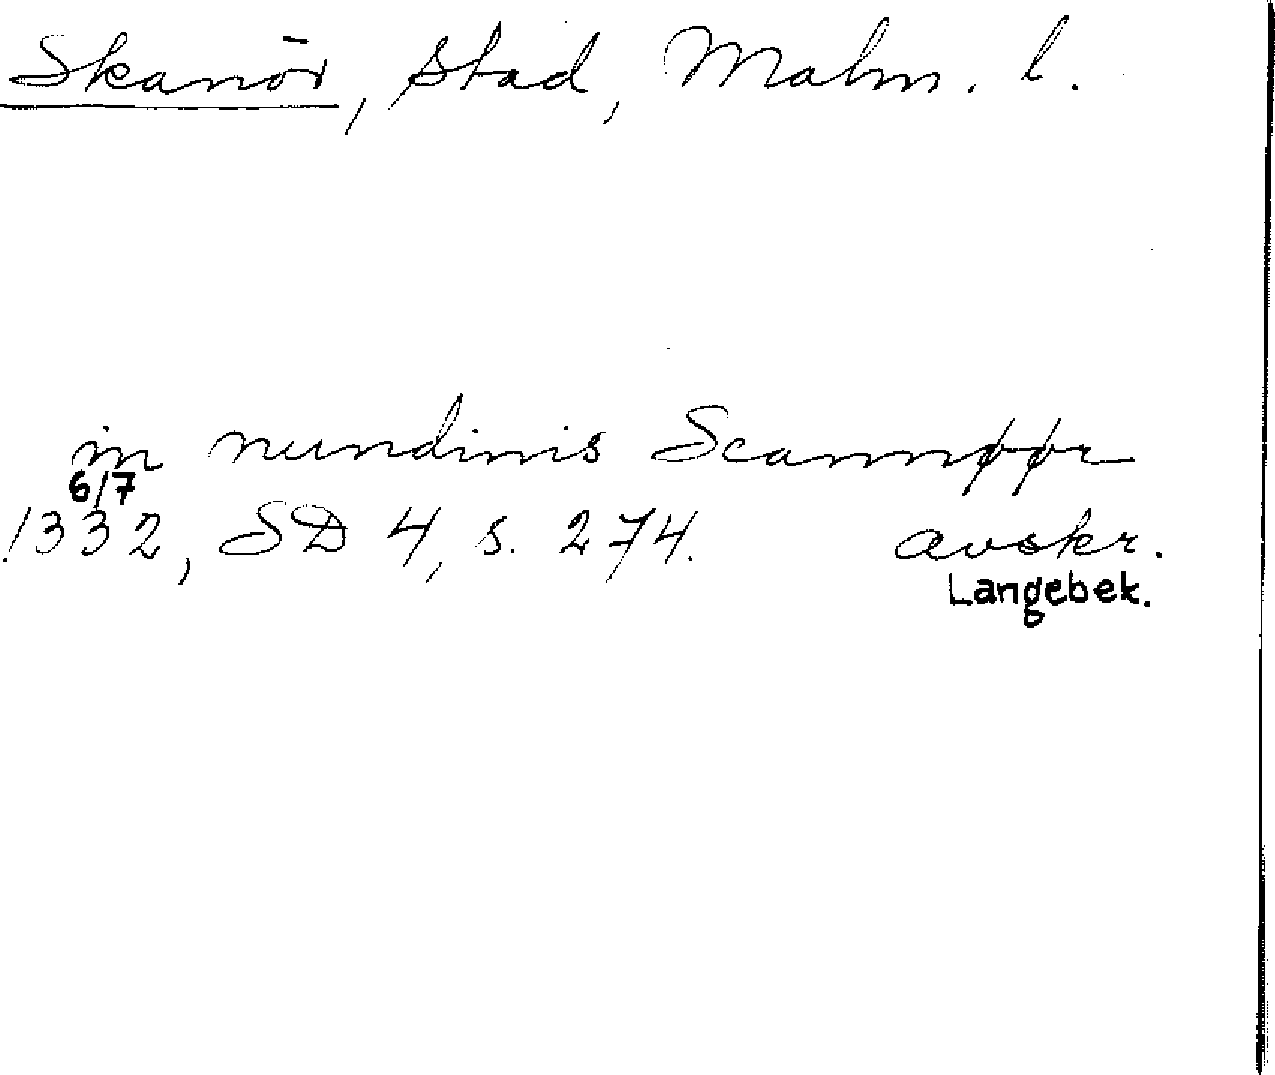 Skanör, stad, Malm. l.
in nundinis Scannøør
6/7
1332, SD 4, s. 274. avskr.
Langebek.